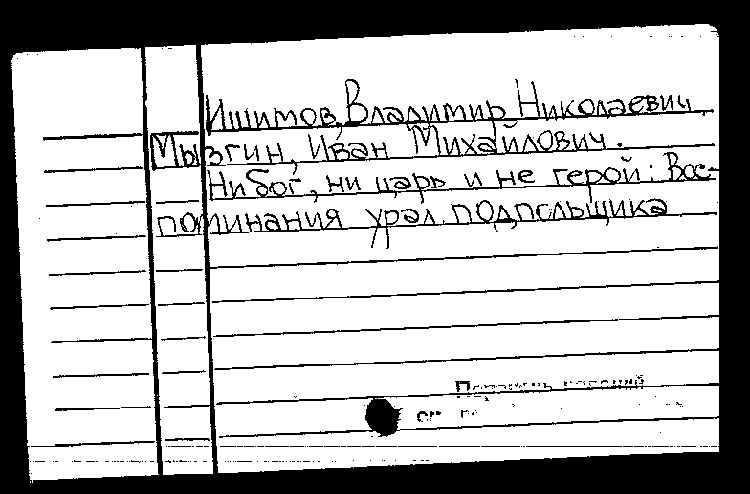 Ишимов, Владимир Николаевич.
Мызгин, Иван Михайлович.
Ни бог, ни царь и не герой: Вос-
поминания урал. подпольщика